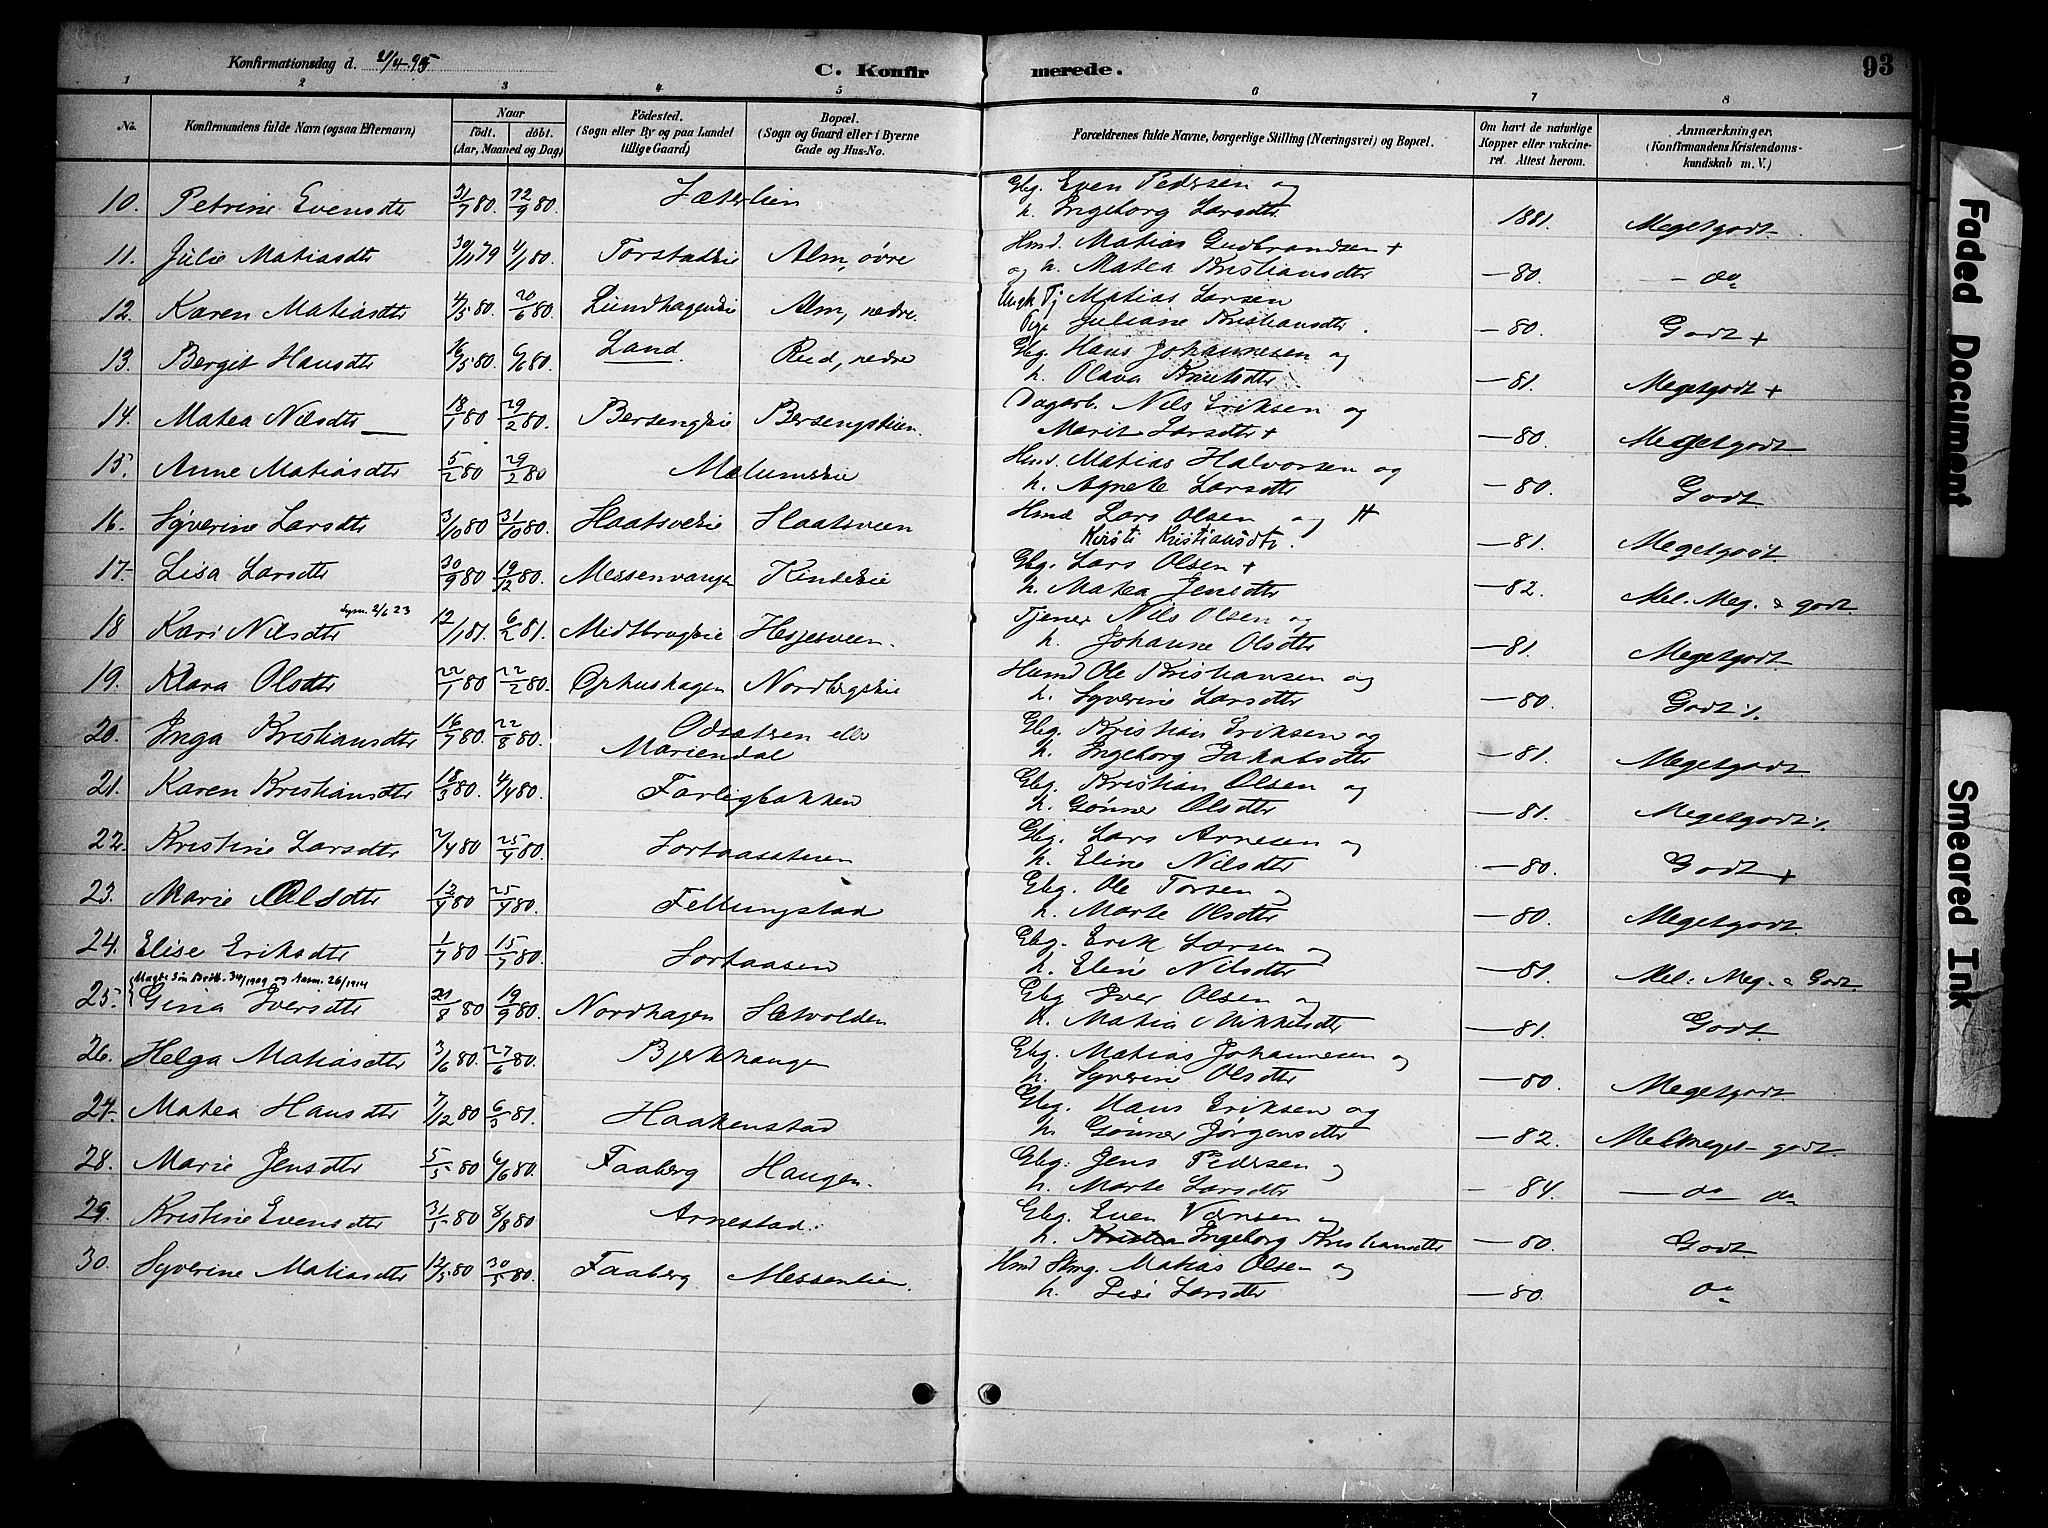 Konfirmationsdag d. 21/4 95
C. Konfirmerede.
93
1 2 3 4 5 6 7 8
No. Konfirmandens fulde Navn (ogsaa Efternavn) Naar født. døbt. (Aar, Maaned og Dag) Fødested. (Sogn eller By og paa Landet tillige Gaard) Bopæl. (Sogn og Gaard eller i Byerne Gade og Hus-No. Forældrenes fulde Navne, borgerlige Stilling (Næringsvei) og Bopæl. Om havt de naturlige Kopper eller vakcineret. Attest herom. Anmærkninger. (Konfirmandens Kristendomskundskab m. V.)
10. Petrine Evensdtr 31/7 80. 12/9 80. Sæterlien Gbg. Even Pedersen og
h. Ingeborg Larsdtr 1881. Megetgodt.
11. Julie Matiasdtr 30/11 79 4/1 80. Torstadeie Alm, øvre Hmd. Matias Gudbrandsen +
og h. Matea Kristiansdtr —80. - do
12. Karen Matiasdtr 4/5 80. 20/6 80. Lundhageneie Alm, nedre. Ungk Tj Matias Larsen
Pige Juliane Kristiansdtr. —80. Godt +
13. Bergit Hansdtr 16/5 80. 6/6 80. Land. Rud, nedre Gbg. Hans Johannesen og
h. Olava Knutsdtr —81. Megetgodt +
14. Matea Nilsdtr 18/1 80 29/2 80. Bersengeie Bersengeien. Dagarb. Nils Eriksen og
Marit Larsdtr + —80. Megetgodt
15. Anne Matiasdtr 5/2 80 29/2 80 Mælumseie Hmd. Matias Halvorsen og
h. Agnete Larsdtr —80. Godt.
16. Syverine Larsdtr 3/10 80 31/10 80. Haatsveie Haatsveen Hmd Lars Olsen og H
Kirsti Kristiansdtr. —81. Megetgodt.
17. Lisa Larsdtr 30/9 80 19/12 80. Messenvangen Kindeie Gbg. Lars Olsen +
h. Matea Jensdtr —82. Mel. Meg. & godt.
18 Kari Nilsdtr 12/1 81. 6/2 81. Midtbrugeie Hesjesveen. Tjener Nils Olsen og
h. Johanne Olsdtr —81. Megetgodt.
19. Klara Olsdtr 22/1 80 22/2 80. Ophushagen Nordbygeie Husmd Ole Kristiansen og
h. Syverine Larsdtr —80. Godt %.
20. Inga Kristiansdtr 16/7 80. 22/8 80. Odsætren eller
Mariendal Gbg. Kristian Eriksen og
h. Ingeborg Jakobsdtr —81. Megetgodt
21. Karen Kristiansdtr 18/3 80. 4/4 80. Farligbakken Gbg. Kristian Olsen og
h. Gønner Olsdtr —81. Megetgodt %.
22. Kristine Larsdtr 2/4 80 25/4 80. Gbg. Lars Arnesen og
h. Eline Nilsdtr —80. Godt +
23. Marie Olsdtr 12/4 80 25/4 80. Fellungstad Gbg. Ole Torsen og
h. Marte Olsdtr —80. Megetgodt.
24. Elise Eriksdtr 1/7 80 15/7 80. Sortaasen Gbg. Erik Larsen og
h. Eline Nilsdtr —81. Mel. Meg. & Godt.
25. Gina Iversdtr 21/8 80 19/9 80. Nordhagen Sætvolden Gbg Iver Olsen og
h. Matia Mikkelsdtr —81. Godt.
26. Helga Matiasdtr 3/6 80. 27/6 80. Bjerkhaugen Gbg. Matias Johannesen og
h. Syverine Olsdtr —80. Megetgodt.
27. Matea Hansdtr 7/12 80 6/3 81. Haakenstad Gbg. Hans Eriksen og
h. Gønner Jørgensdtr —82. Mel meget- godt.
28. Marie Jensdtr 5/5 80 6/6 80. Faaberg Haugen. Gbg. Jens Pedersen og
h. Marte Larsdtr - 84. — do do
29. Kristine Evensdtr 31/5 80 8/8 80 Arnestad. Gbg. Even
h. Ingeborg Kristiansdtr —80. Godt
30. Syverine Matiasdtr 12/5 80 30/5 80. Faaberg Messenlien. Hmd Matias Olsen og
h. Lisi Larsdtr —80. do
Faded Document
Smeared Ink